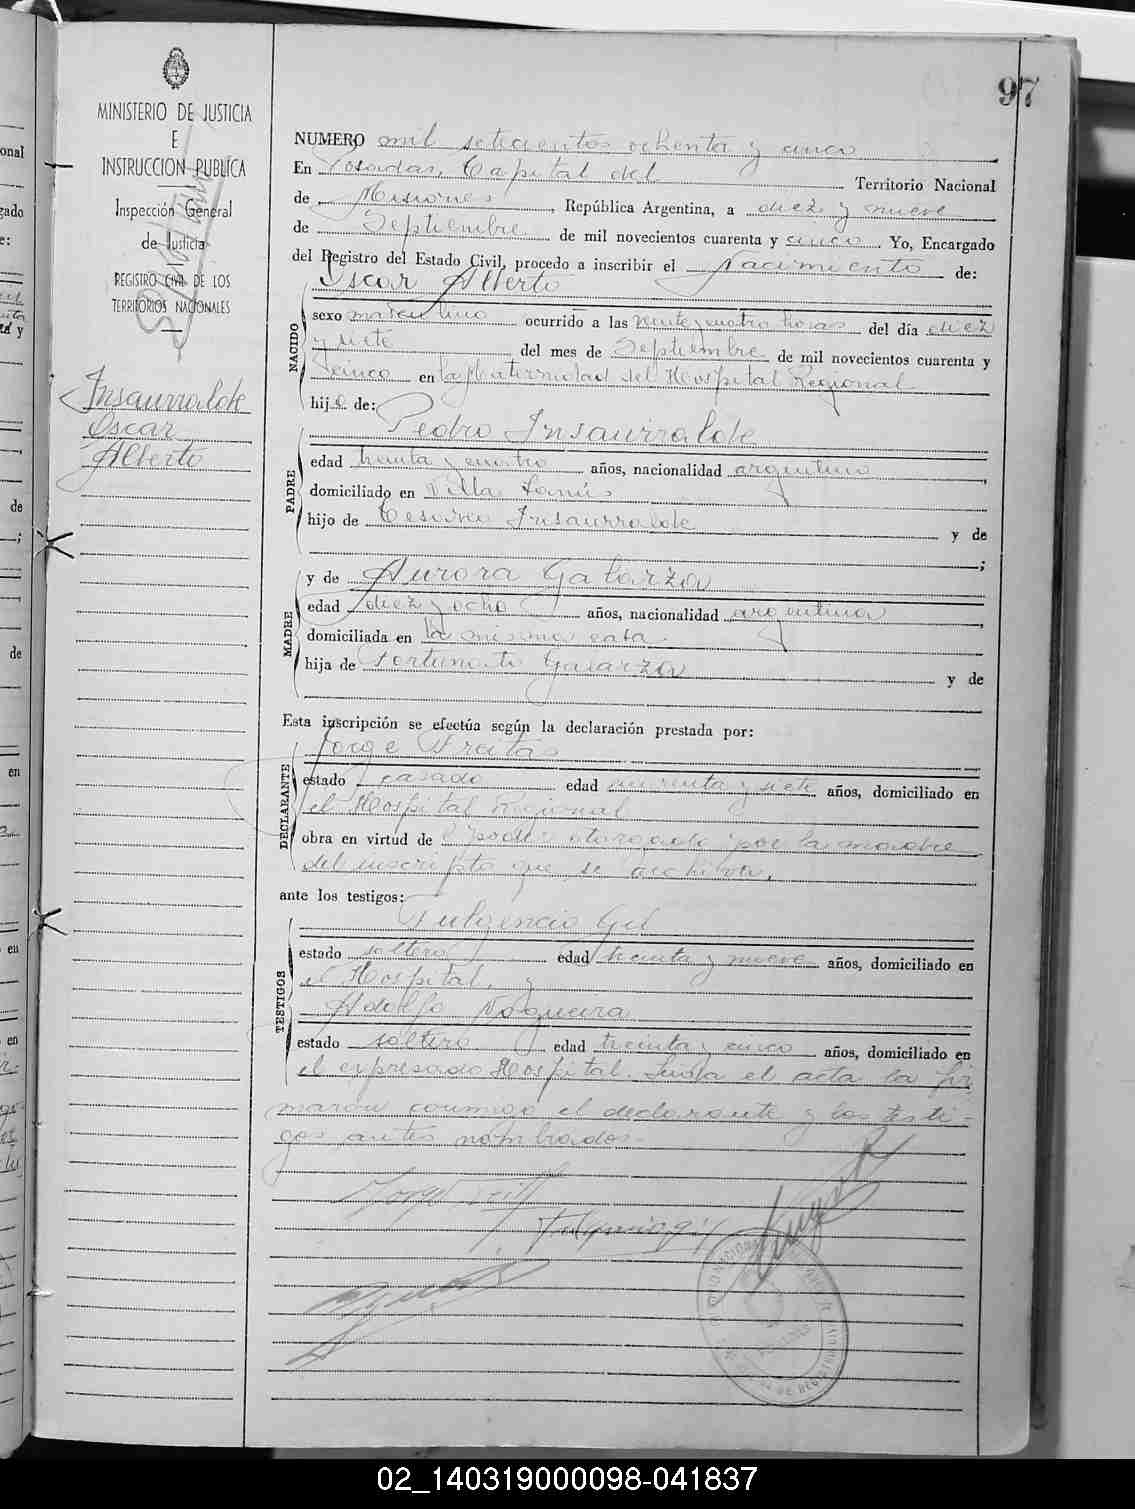 97
MINISTERIO DE JUSTICIA
E
INSTRUCCION PUBLICA
Inspección General
de Justicia
REGISTRO CIVIL DE LOS
TERRITORIOS NACIONALES
Insaurralde
Oscar
Alberto
NUMERO mil setecientos ochenta y cinco
En Posadas, Capital del Territorio Nacional
de Misiones, República Argentina, a diez y nueve
de Septiembre de mil novecientos cuarenta y cinco. Yo, Encargado
del Registro del Estado Civil, procedo a inscribir el Nacimiento de:
Oscar Alberto
NACIDO
sexo masculino ocurrido a las veinte y cuatro horas del día diez
y siete del mes de Septiembre de mil novecientos cuarenta y
cinco en la Maternidad del Hospital Regional
hijo de:
Pedro Insaurralde
PADRE
edad treinta y cuatro años, nacionalidad argentino,
domiciliado en Villa Lanús
hijo de Cesario Insaurralde y de
;
y de Aurora Galarza
MADRE
edad diez y ocho años, nacionalidad argentina
domiciliada en la misma casa
hija de Fortunato Galarza y de
Esta inscripción se efectúa según la declaración prestada por:
Jorge Freitas
DECLARANTE
estado casado edad cuarenta y siete años, domiciliado en
el Hospital Regional
obra en virtud de el poder otorgado por la madre
del inscripto que se archiva.
ante los testigos:
Fulgencio Gil
TESTIGOS
estado soltero edad treinta y nueve años, domiciliado en
el Hospital, y
Adolfo Nogueira
estado soltero edad treinta y cinco años, domiciliado en
el expresado Hospital. Leída el acta la fir
maron conmigo el declarante y los testi-
gos antes nombrados.
Fulgencio Gil
02_140319000098-041837